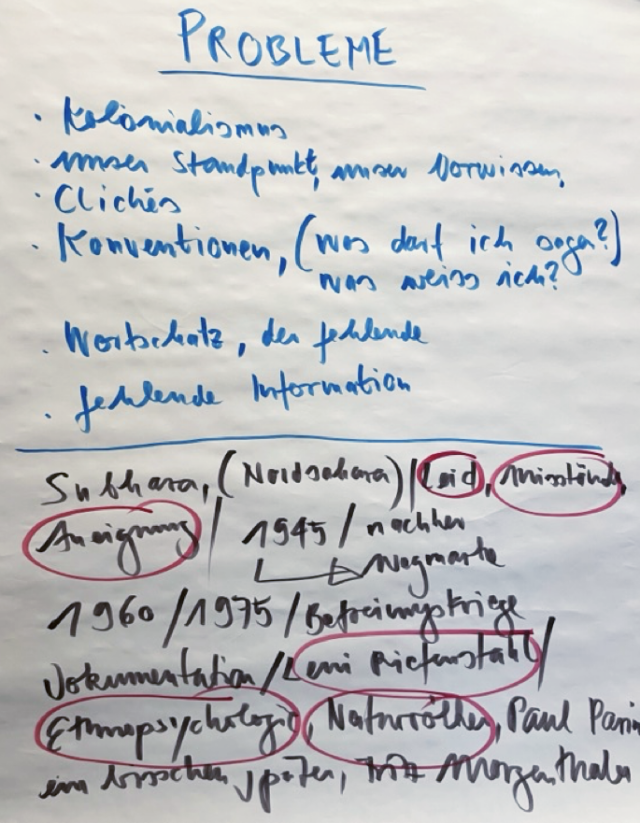 PROBLEME
· Kolonialismus
· unser Standpunkt, unser Vorwissen,
· Clichés
· Konventionen, (was darf ich sagen?)
was weiss ich?
· Wortschatz, der fehlende
· fehlende Information
Subhara, (Nordsahara) / Leid, Missstände,
Aneignung / 1945 / nachher
Wegmarke
1960 / 1975 / Befreiungskriege
Dokumentation / Leni Riefenstahl /
Ethnopsychologie, Naturvölker, Paul Parin
ein bisschen später, Morgenthaler